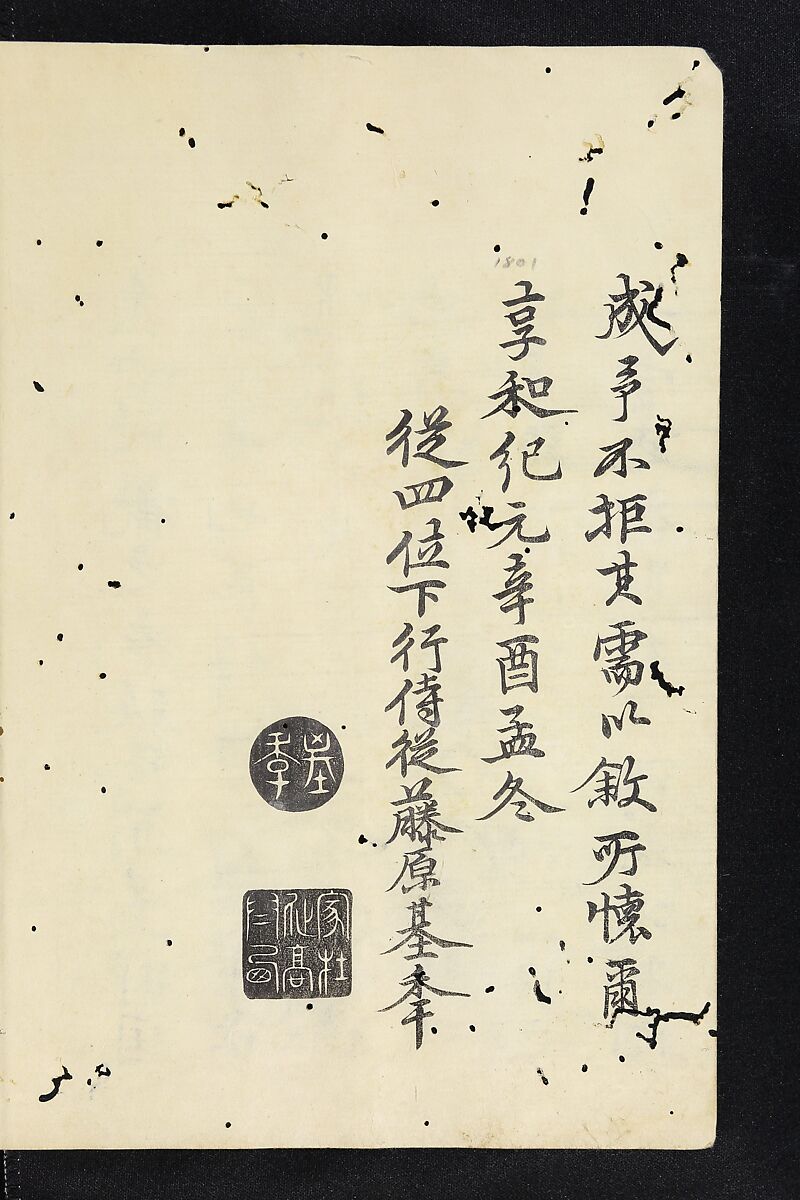 成予不拒其需以敘所懷爾
1801
享和紀元辛酉孟冬
從四位下行侍從藤原基季
基季